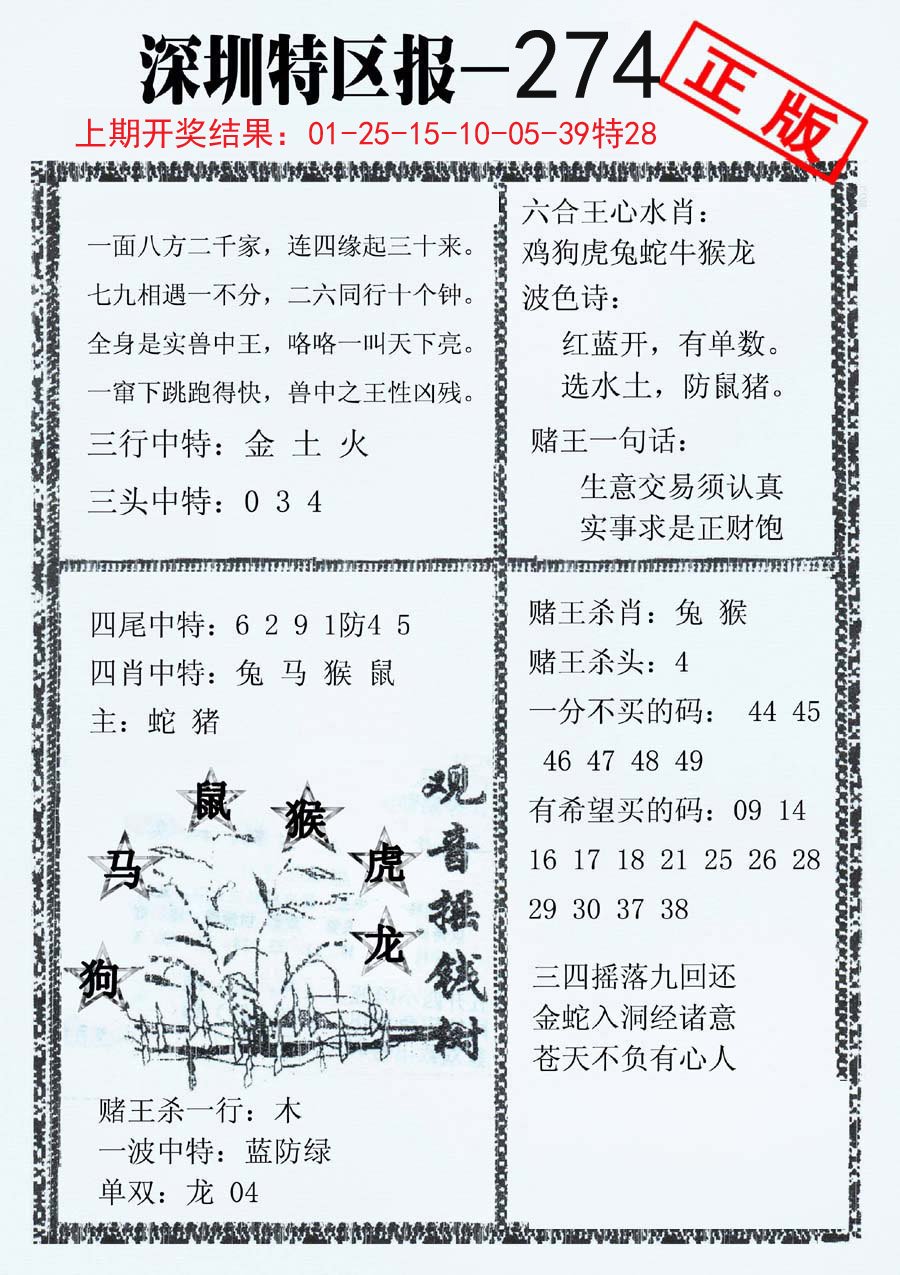 深圳特区报-274
正版
上期开奖结果：01-25-15-10-05-39特28
一面八方二千家，连四缘起三十来。
七九相遇一不分，二六同行十个钟。
全身是实兽中王，咯咯一叫天下亮。
一窜下跳跑得快，兽中之王性凶残。
三行中特：金 土 火
三头中特：0 3 4
六合王心水肖：
鸡狗虎兔蛇牛猴龙
波色诗：
红蓝开，有单数。
选水土，防鼠猪。
赌王一句话：
生意交易须认真
实事求是正财饱
四尾中特：6 2 9 1防4 5
四肖中特：兔 马 猴 鼠
主：蛇 猪
鼠
猴
马
虎
龙
狗
观音摇钱树
赌王杀一行：木
一波中特：蓝防绿
单双：龙 04
赌王杀肖：兔 猴
赌王杀头：4
一分不买的码： 44 45
46 47 48 49
有希望买的码：09 14
16 17 18 21 25 26 28
29 30 37 38
三四摇落九回还
金蛇入洞经诸意
苍天不负有心人